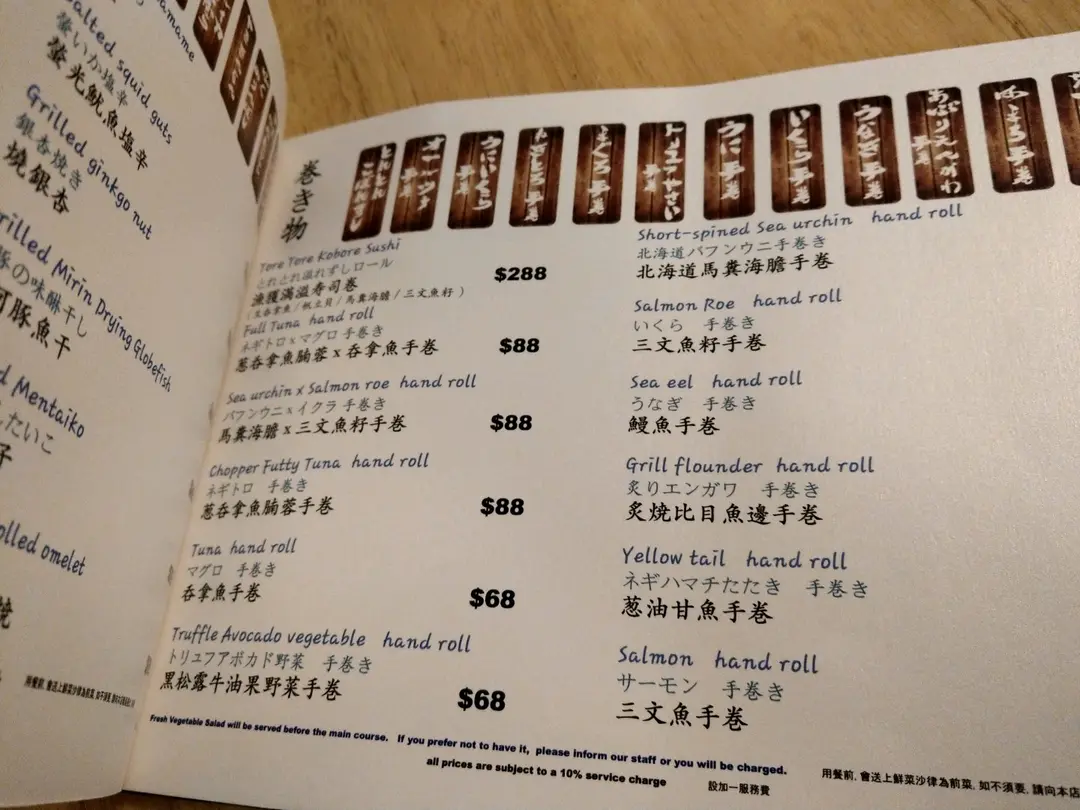 amame
alted squid guts
螢いか塩辛
螢光魷魚塩辛
Grilled ginkgo nut
銀杏焼き
燒銀杏
rilled Mirin Drying Globefish
豚の味醂干し
河豚魚干
d Mentaiko
たいこ
子
olled omelet
燒
用餐前, 會送上鮮菜沙律為前菜, 如不須要, 請向本店
巻き物
うにいくら
手巻
まぐろ手巻
うに手巻
いくら手巻
うなぎ手巻
あぶりえんがわ
はまち手巻
Tore Tore Kobore Sushi
とれとれ溢れずしロール
漁獲滿溢寿司卷
$288
( 生吞拿魚 / 帆立貝 / 馬糞海膽 / 三文魚籽 )
Full Tuna hand roll
ネギトロ x マグロ 手巻き
葱吞拿魚腩蓉 x 吞拿魚手卷
$88
Sea urchin x Salmon roe hand roll
バフンウニ x イクラ 手巻き
馬糞海膽 x 三文魚籽手卷
$88
Chopper Futty Tuna hand roll
ネギトロ 手巻き
葱吞拿魚腩蓉手卷
$88
Tuna hand roll
マグロ 手巻き
吞拿魚手卷
$68
Truffle Avocado vegetable hand roll
トリュフアボカド野菜 手巻き
黑松露牛油果野菜手卷
$68
Short-spined Sea urchin hand roll
北海道バフンウニ手巻き
北海道馬糞海膽手卷
Salmon Roe hand roll
いくら 手巻き
三文魚籽手卷
Sea eel hand roll
うなぎ 手巻き
鰻魚手卷
Grill flounder hand roll
炙りエンガワ 手巻き
炙燒比目魚邊手卷
Yellow tail hand roll
ネギハマチたたき 手巻き
葱油甘魚手卷
Salmon hand roll
サーモン 手巻き
三文魚手卷
Fresh Vegetable Salad will be served before the main course. If you prefer not to have it, please inform our staff or you will be charged.
all prices are subject to a 10% service charge 設加一服務費
用餐前, 會送上鮮菜沙律為前菜, 如不須要, 請向本店